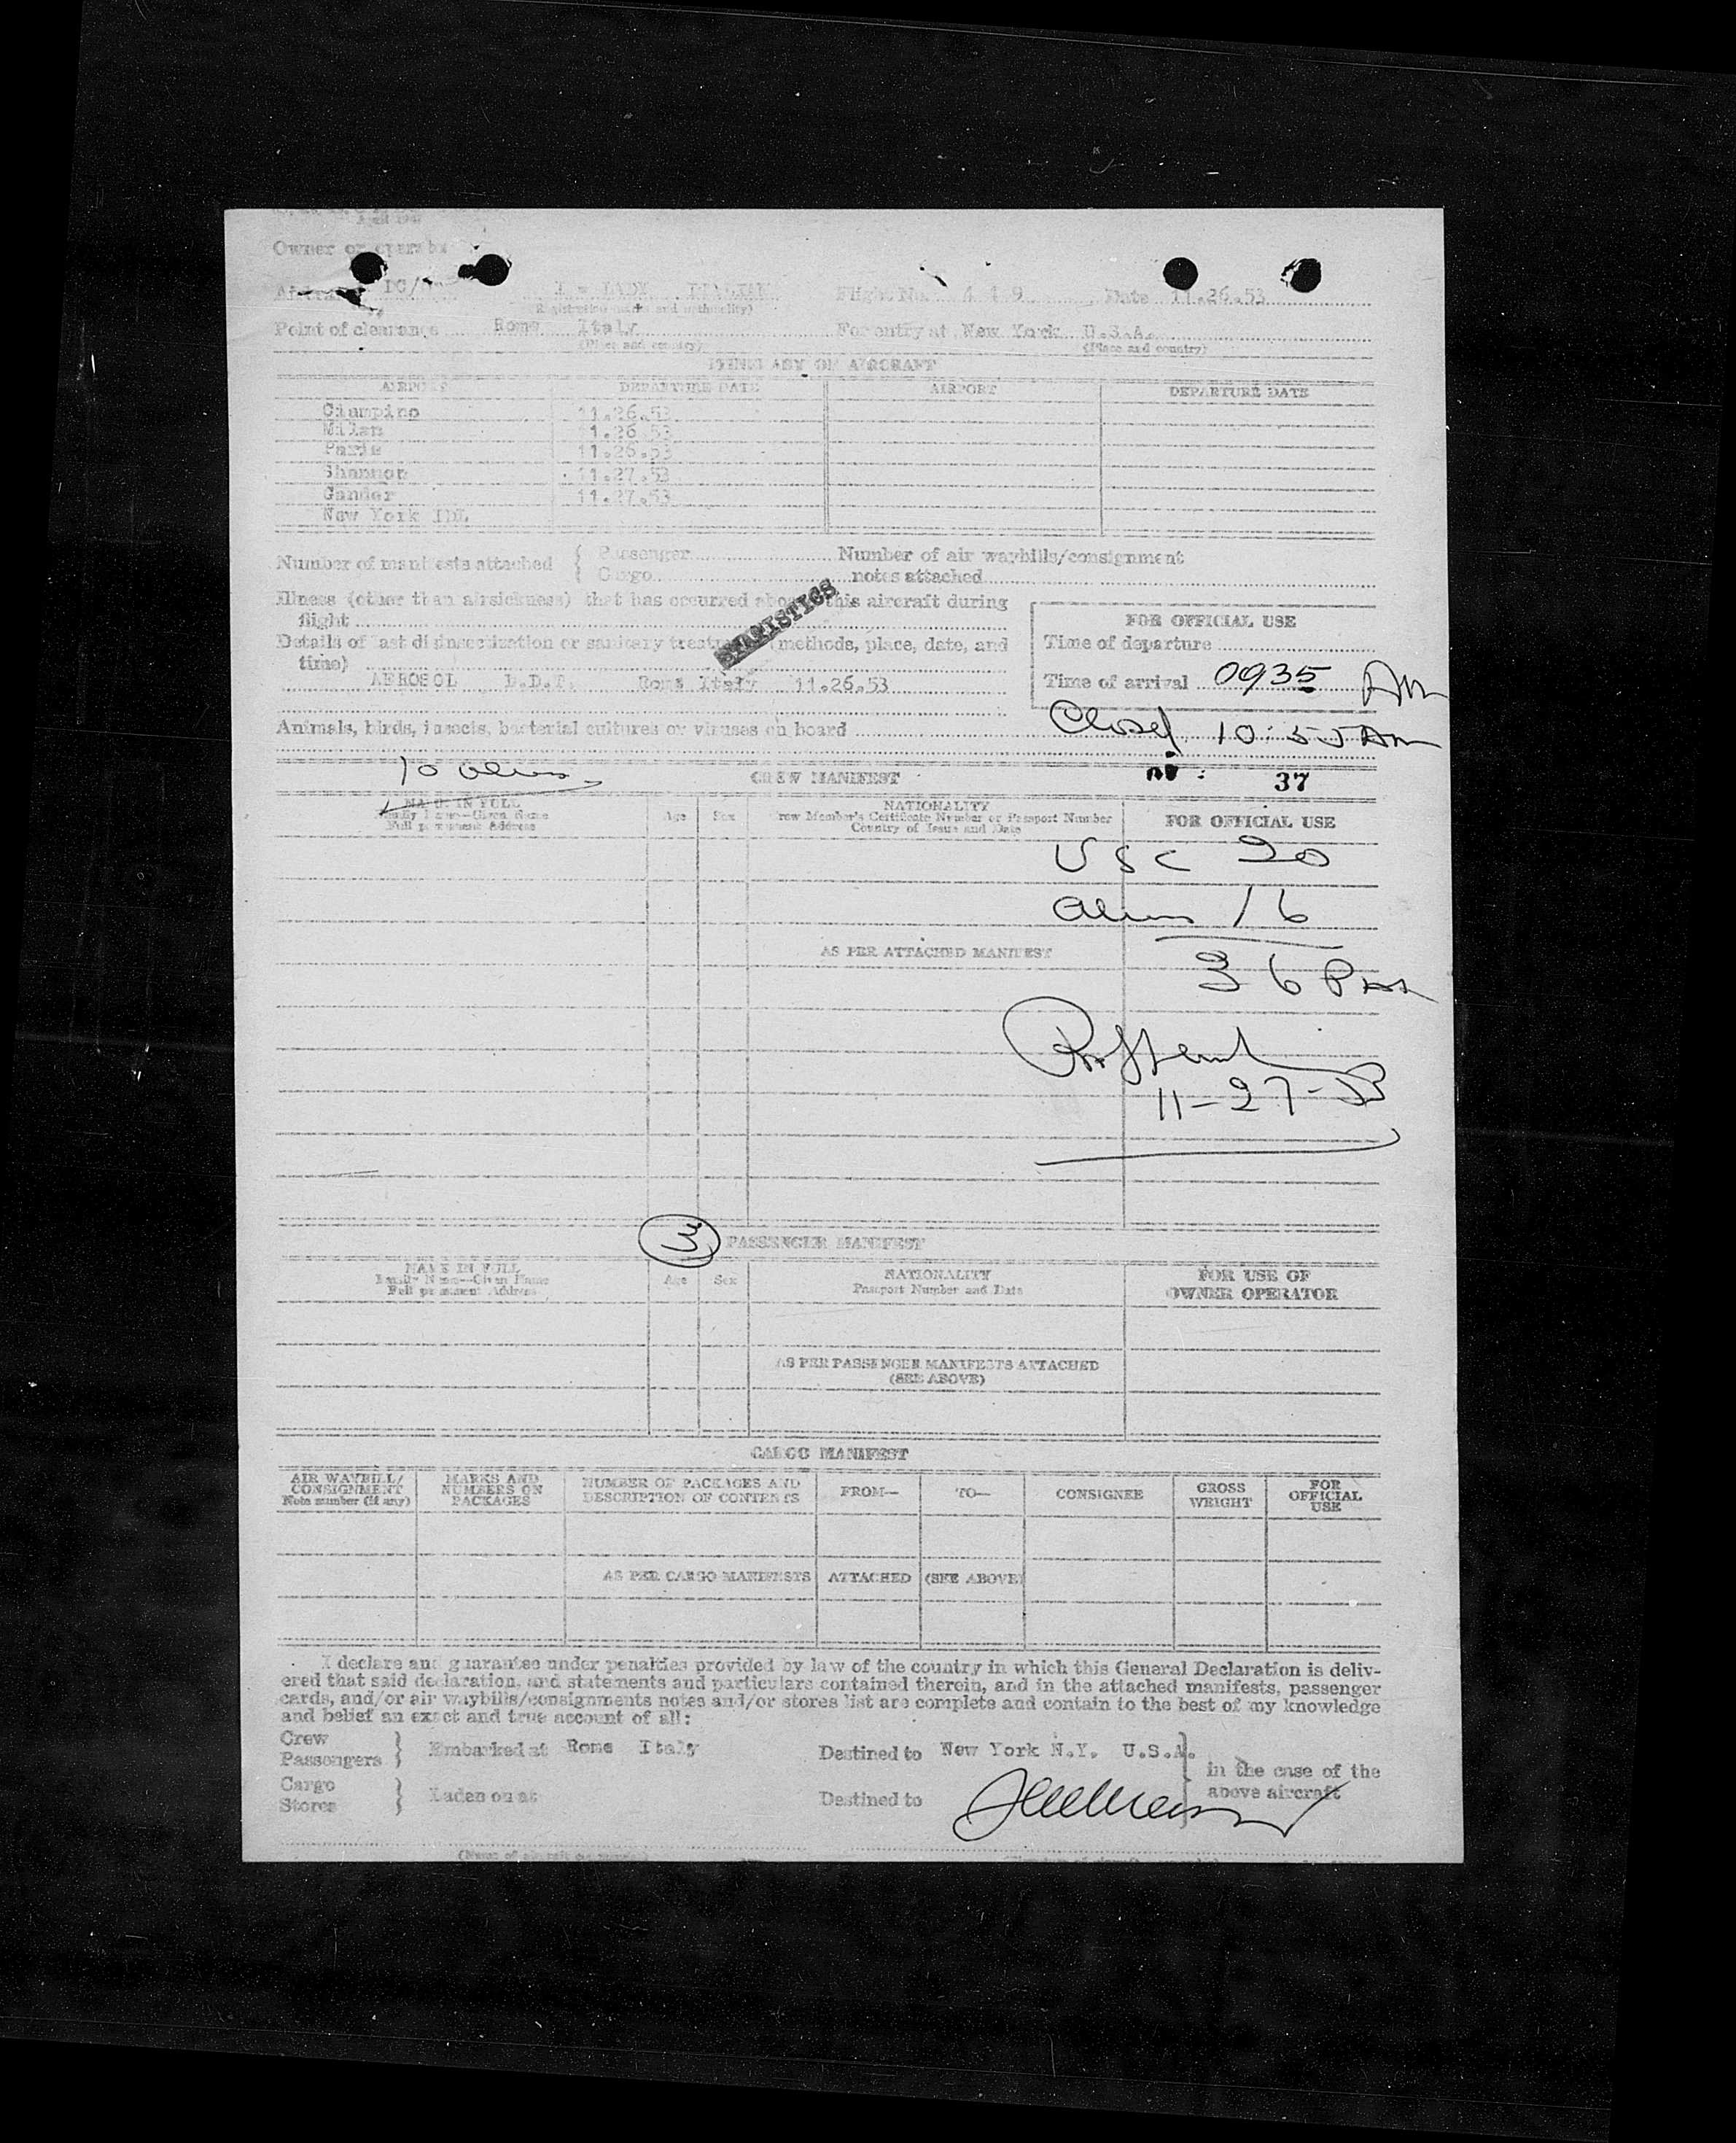 Owner or operator
Aircraft DC/ ITALIAN Flight No. 4 4 9 Date 11.26.53
(Registration marks and nationality)
Point of clearance Rome Italy For entry at New York U.S.A.
(Place and country) (Place and country)
ITINERARY OF AIRCRAFT
AIRPORT DEPARTURE DATE AIRPORT DEPARTURE DATE
Ciampino 11.26.53
Milan 11.26.53
Paris 11.26.53
Shannon 11.27.53
Gander 11.27.53
New York IDL
Number of manifests attached { Passenger Number of air waybills/consignment
Cargo notes attached
Illness (other than airsickness) that has occurred aboard this aircraft during
flight
STATISTICS
FOR OFFICIAL USE
Details of last disinsectization or sanitary treatment (methods, place, date, and
time)
Time of departure
AEROSOL D.D.T. Rome Italy 11.26.53
Time of arrival 0935 AM
Closed 10:55 AM
Animals, birds, insects, bacterial cultures or viruses on board
10 aliens
CREW MANIFEST 37
NAME IN FULL
Family Name—Given Name
Full permanent Address
Age Sex
NATIONALITY
Crew Member's Certificate Number or Passport Number
Country of Issue and Date
FOR OFFICIAL USE
USC 20
aliens 16
AS PER ATTACHED MANIFEST
36 Pass
11-27-53
3 PASSENGER MANIFEST
NAME IN FULL
Family Name—Given Name
Full permanent Address
Age Sex
NATIONALITY
Passport Number and Date
FOR USE OF
OWNER OPERATOR
AS PER PASSENGER MANIFESTS ATTACHED
(SEE ABOVE)
CARGO MANIFEST
AIR WAYBILL/
CONSIGNMENT
Note number (if any)
MARKS AND
NUMBERS ON
PACKAGES
NUMBER OF PACKAGES AND
DESCRIPTION OF CONTENTS
FROM— TO— CONSIGNEE
GROSS
WEIGHT
FOR
OFFICIAL
USE
AS PER CARGO MANIFESTS ATTACHED (SEE ABOVE)
I declare and guarantee under penalties provided by law of the country in which this General Declaration is deliv-
ered that said declaration, and statements and particulars contained therein, and in the attached manifests, passenger
cards, and/or air waybills/consignments notes and/or stores list are complete and contain to the best of my knowledge
and belief an exact and true account of all:
Crew
Passengers } Embarked at Rome Italy Destined to New York N.Y. U.S.A.
in the case of the
above aircraft
Cargo
Stores } Laden on at Destined to
(Name of aircraft commander)